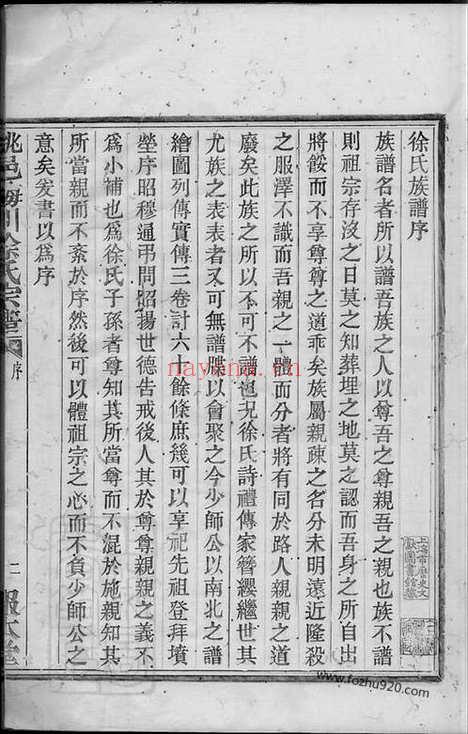 徐氏族譜序
族譜名者所以譜吾族之人以尊吾之尊親吾之親也族不譜
則祖宗存沒之日莫之知葬埋之地莫之認而吾身之所自出
將餒而不享尊尊之道乖矣族屬親疎之分未明遠近隆殺
之服澤不識而吾親之一體而分者將有同於路人親親之道
廢矣此族之所以不可不譜也況徐氏詩禮傳家簪纓繼世其
尤族之表表者可無譜牒以會聚之今少師公以南北之譜
繪圖列傳實傳三卷計六十餘條庶幾可以享祀先祖登拜墳
塋序昭穆通弔問昭揚世德告戒後人其於尊尊親親之義不
為小補也為徐氏子孫者尊知其所當尊而不混於施親知其
所當親而不紊於序然後可以體祖宗之心而不負少師公之
意矣爰書以為序
姚邑梅川徐氏宗譜
序
二
報本堂
上海市歷史文
獻圖書館藏
nayana.cn
www.fozhu920.com